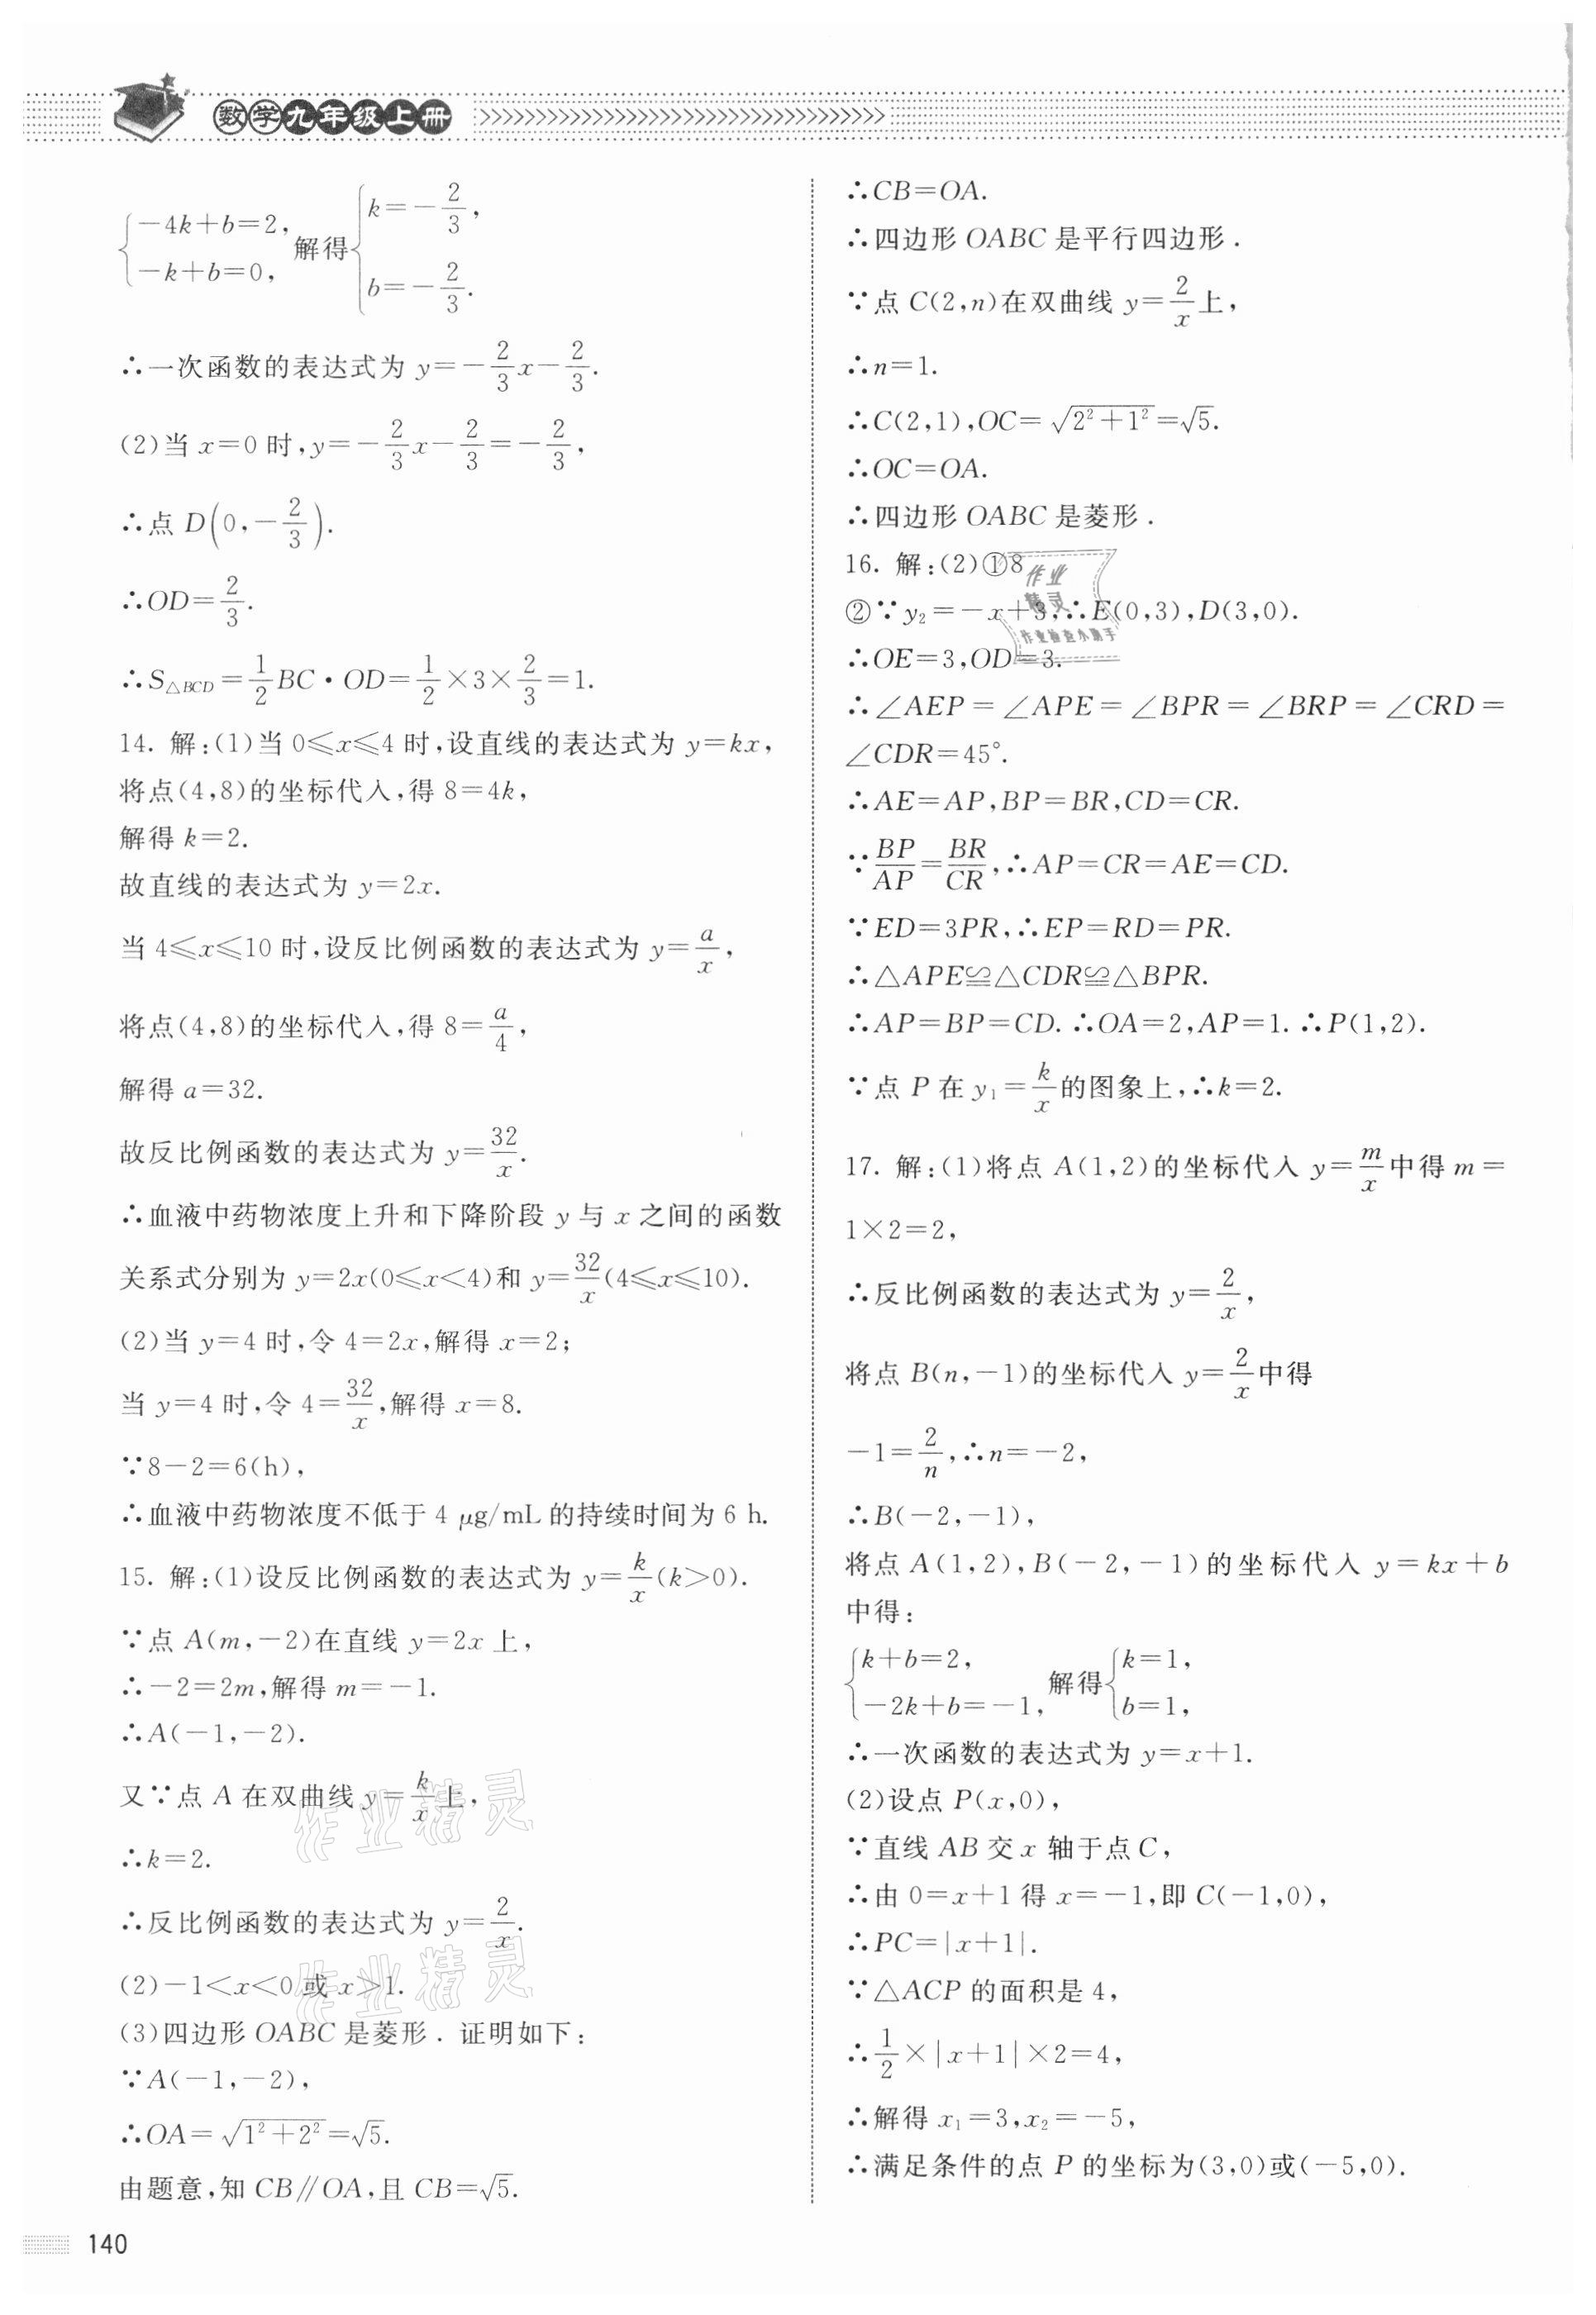 数学九年级上册
{−4k+b=2, −k+b=0, 解得{k=−2/3, b=−2/3.
∴一次函数的表达式为 y=−2/3x−2/3.
(2)当 x=0 时,y=−2/3x−2/3=−2/3,
∴点 D(0,−2/3).
∴OD=2/3.
∴S△BCD=1/2BC·OD=1/2×3×2/3=1.
14. 解:(1)当 0≤x≤4 时,设直线的表达式为 y=kx,
将点(4,8)的坐标代入,得 8=4k,
解得 k=2.
故直线的表达式为 y=2x.
当 4≤x≤10 时,设反比例函数的表达式为 y=a/x,
将点(4,8)的坐标代入,得 8=a/4,
解得 a=32.
故反比例函数的表达式为 y=32/x.
∴血液中药物浓度上升和下降阶段 y 与 x 之间的函数
关系式分别为 y=2x(0≤x<4)和 y=32/x(4≤x≤10).
(2)当 y=4 时,令 4=2x,解得 x=2;
当 y=4 时,令 4=32/x,解得 x=8.
∵8−2=6(h),
∴血液中药物浓度不低于 4 μg/mL 的持续时间为 6 h.
15. 解:(1)设反比例函数的表达式为 y=k/x(k>0).
∵点 A(m,−2)在直线 y=2x 上,
∴−2=2m,解得 m=−1.
∴A(−1,−2).
又∵点 A 在双曲线 y=k/x上,
∴k=2.
∴反比例函数的表达式为 y=2/x.
(2)−1<x<0 或 x>1.
(3)四边形 OABC 是菱形. 证明如下:
∵A(−1,−2),
∴OA=√(1²+2²)=√5.
由题意,知 CB∥OA,且 CB=√5.
作业精灵
作业精灵
140
∴CB=OA.
∴四边形 OABC 是平行四边形.
∵点 C(2,n)在双曲线 y=2/x上,
∴n=1.
∴C(2,1),OC=√(2²+1²)=√5.
∴OC=OA.
∴四边形 OABC 是菱形.
16. 解:(2)①8
②∵y₂=−x+3,∴E(0,3),D(3,0).
作业
精灵
作业检查小助手
∴OE=3,OD=3.
∴∠AEP=∠APE=∠BPR=∠BRP=∠CRD=
∠CDR=45°.
∴AE=AP,BP=BR,CD=CR.
∵BP/AP=BR/CR,∴AP=CR=AE=CD.
∵ED=3PR,∴EP=RD=PR.
∴△APE≌△CDR≌△BPR.
∴AP=BP=CD.∴OA=2,AP=1.∴P(1,2).
∵点 P 在 y₁=k/x的图象上,∴k=2.
17. 解:(1)将点 A(1,2)的坐标代入 y=m/x中得 m=
1×2=2,
∴反比例函数的表达式为 y=2/x,
将点 B(n,−1)的坐标代入 y=2/x中得
−1=2/n,∴n=−2,
∴B(−2,−1),
将点 A(1,2),B(−2,−1)的坐标代入 y=kx+b
中得:
{k+b=2, −2k+b=−1, 解得{k=1, b=1,
∴一次函数的表达式为 y=x+1.
(2)设点 P(x,0),
∵直线 AB 交 x 轴于点C,
∴由 0=x+1 得 x=−1,即 C(−1,0),
∴PC=|x+1|.
∵△ACP 的面积是 4,
∴1/2×|x+1|×2=4,
∴解得 x₁=3,x₂=−5,
∴满足条件的点 P 的坐标为(3,0)或(−5,0).